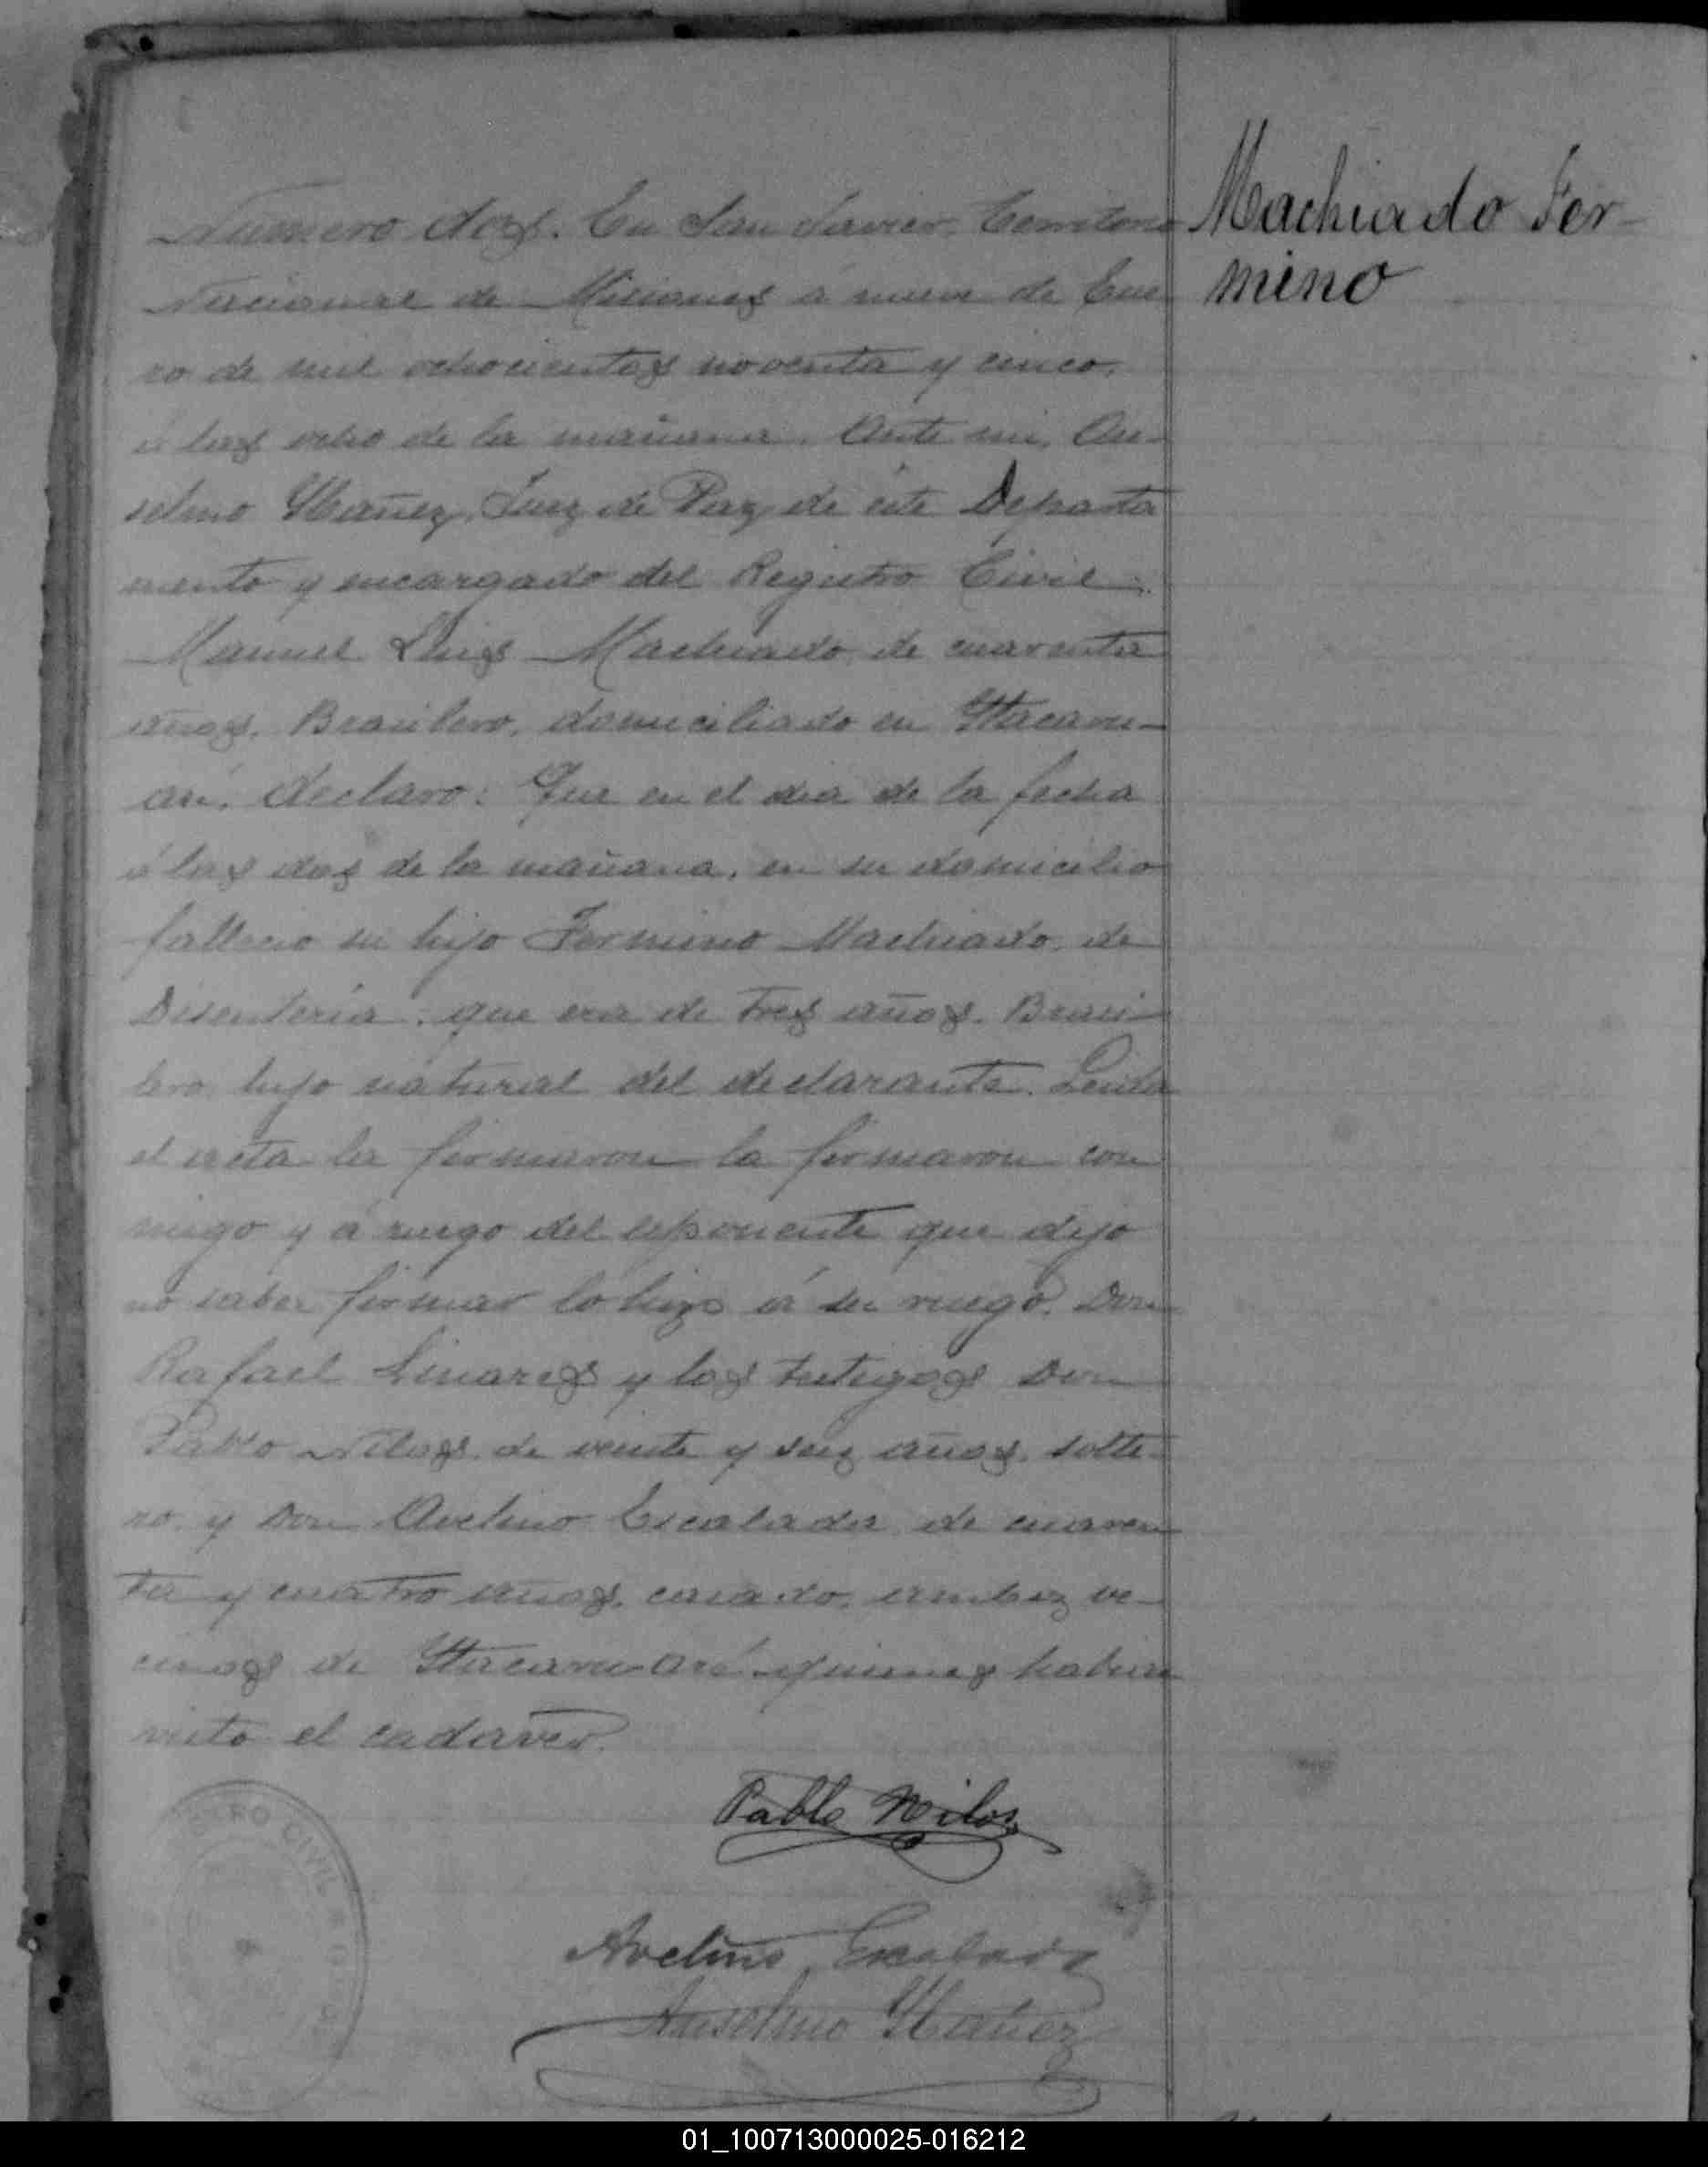 Numero dos. En San Javier, Territorio
Nacional de Misiones á nueve de Ene
ro de mil ochocientos noventa y cinco,
á las ocho de la mañana. Ante mi, An-
selmo Ybañez, Juez de Paz de éste Departa
mento y encargado del Registro Civil;
Manuel Luis Machado, de cuarenta
años, Brasilero, domiciliado en Ytacaru-
aré, declaro: Que en el dia de la fecha
á las dos de la mañana, en su domicilio
fallecio su hijo Fermino Machado, de
Disenteria, que era de tres años, Brasi-
lero, hijo natural del declarante. Leida
el acta la firmaron la firmaron con
migo y á ruego del esponente que dijo
no saber firmar lo hizo á su ruego, Don
Rafael Linares y los testigos Don
Pablo Nilos, de veinte y seiz años, solte-
ro, y Don Avelino Escalada, de cuaren
ta y cuatro años, casado, ambos ve-
cinos de Ytacaru-aré quienes habian
visto el cadaver.
Pablo Nilos
Avelino Escalada
Anselmo Ybañez
Machiado Fer-
mino
RO CIVIL
01_100713000025-016212